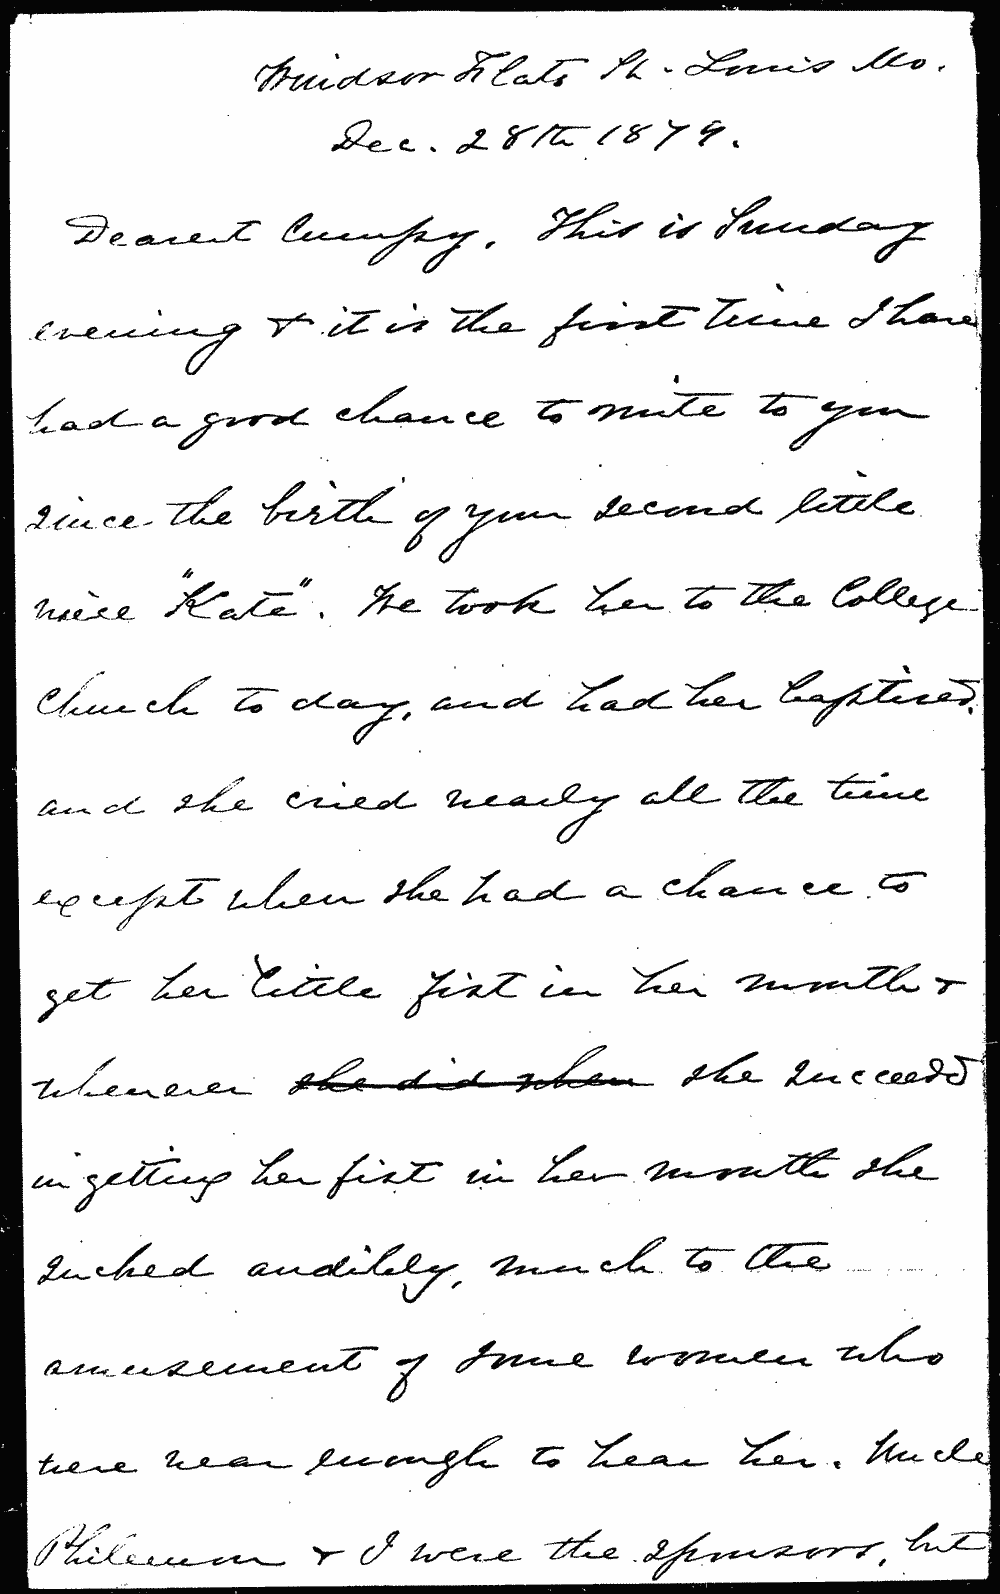 Windsor Flats St. Louis Mo.
Dec. 28th 1879.
Dearest Cumpy. This is Sunday
evening & it is the first time I have
had a good chance to write to you
since the birth of your second little
niece "Kate". We took her to the College
Church to day, and had her baptised,
and she cried nearly all the time
except when she had a chance to
get her little fist in her mouth &
whenever she did when she succeed
in getting her fist in her mouth she
sucked audibly, much to the
amusement of some women who
were near enough to hear her. Uncle
Philemon & I were the sponsors, but